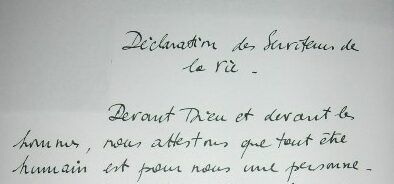 Déclaration des Serviteurs de
la Vie -
Devant Dieu et devant les
hommes, nous attestons que tout être
humain est pour nous une personne -